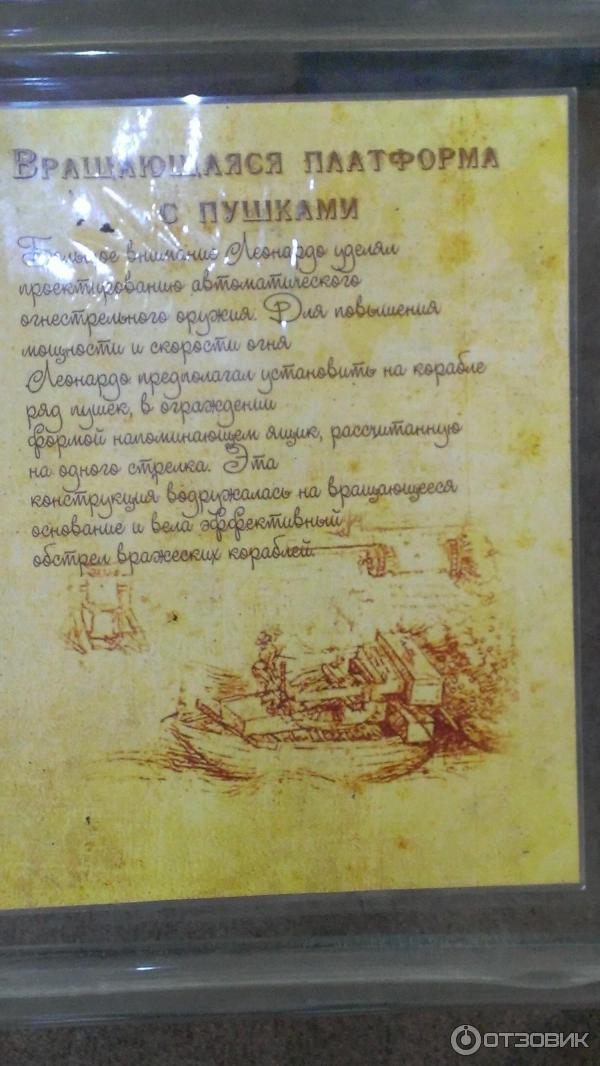 Вращающаяся платформа
с пушками
Большое внимание Леонардо уделял
проектированию автоматического
огнестрельного оружия. Для повышения
мощности и скорости огня
Леонардо предполагал установить на корабле
ряд пушек, в ограждении
формой напоминающем ящик, рассчитанную
на одного стрелка. Эта
конструкция водружалась на вращающееся
основание и вела эффективный
обстрел вражеских кораблей.
ОТЗОВИК